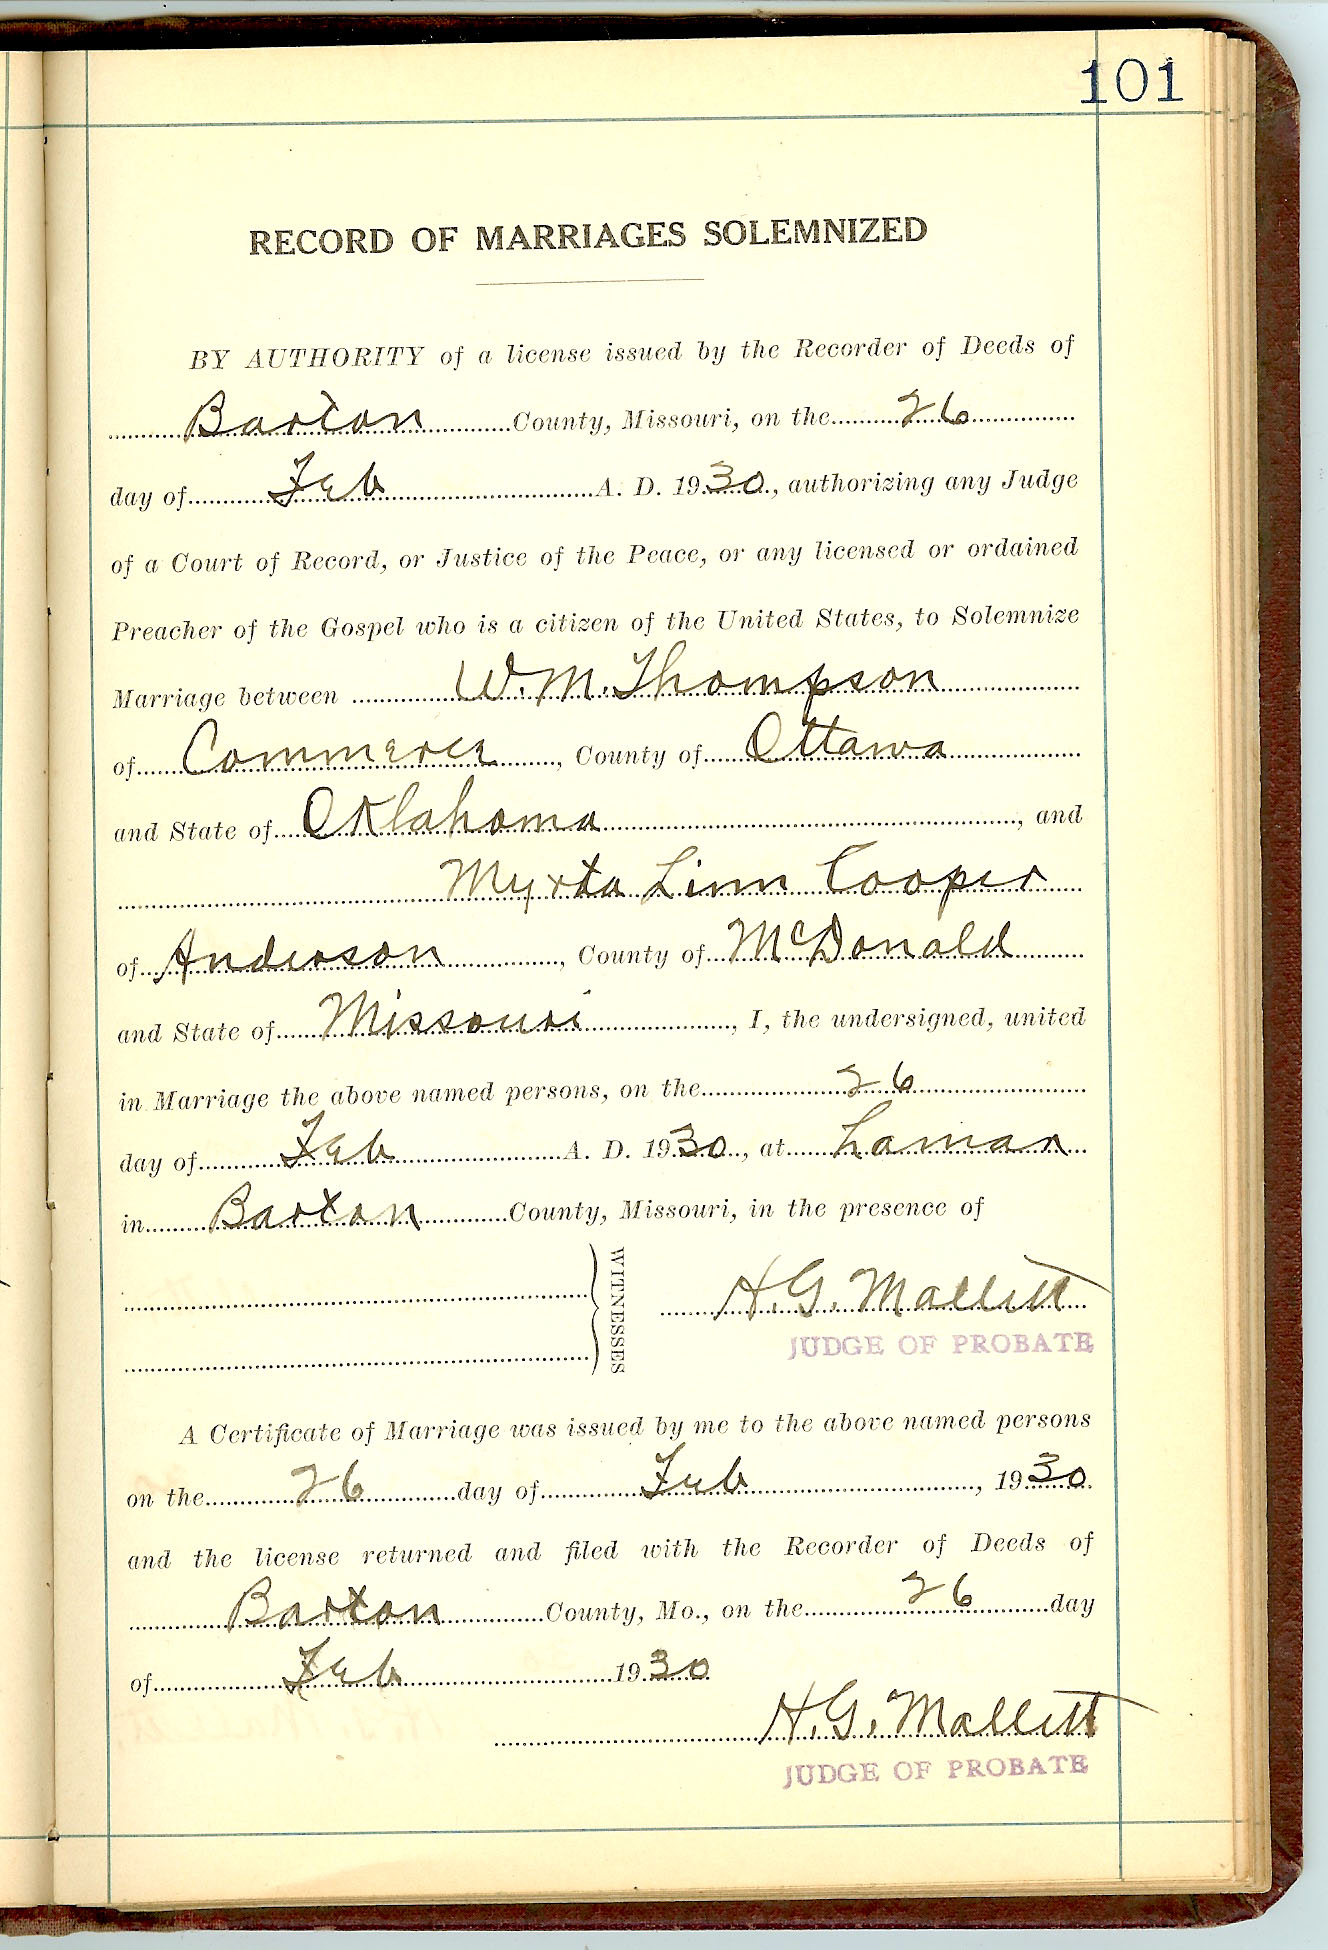 101
RECORD OF MARRIAGES SOLEMNIZED
BY AUTHORITY of a license issued by the Recorder of Deeds of
Barton County, Missouri, on the 26
day of Feb A. D. 1930, authorizing any Judge
of a Court of Record, or Justice of the Peace, or any licensed or ordained
Preacher of the Gospel who is a citizen of the United States, to Solemnize
Marriage between W. M. Thompson
of Commerce, County of Ottawa
and State of Oklahoma, and
Myrta Linn Cooper
of Anderson, County of McDonald
and State of Missouri, I, the undersigned, united
in Marriage the above named persons, on the 26
day of Feb A. D. 1930, at Lamar
in Barton County, Missouri, in the presence of
WITNESSES
H. G. Mallett
JUDGE OF PROBATE
A Certificate of Marriage was issued by me to the above named persons
on the 26 day of Feb, 1930
and the license returned and filed with the Recorder of Deeds of
Barton County, Mo., on the 26 day
of Feb 1930
H. G. Mallett
JUDGE OF PROBATE